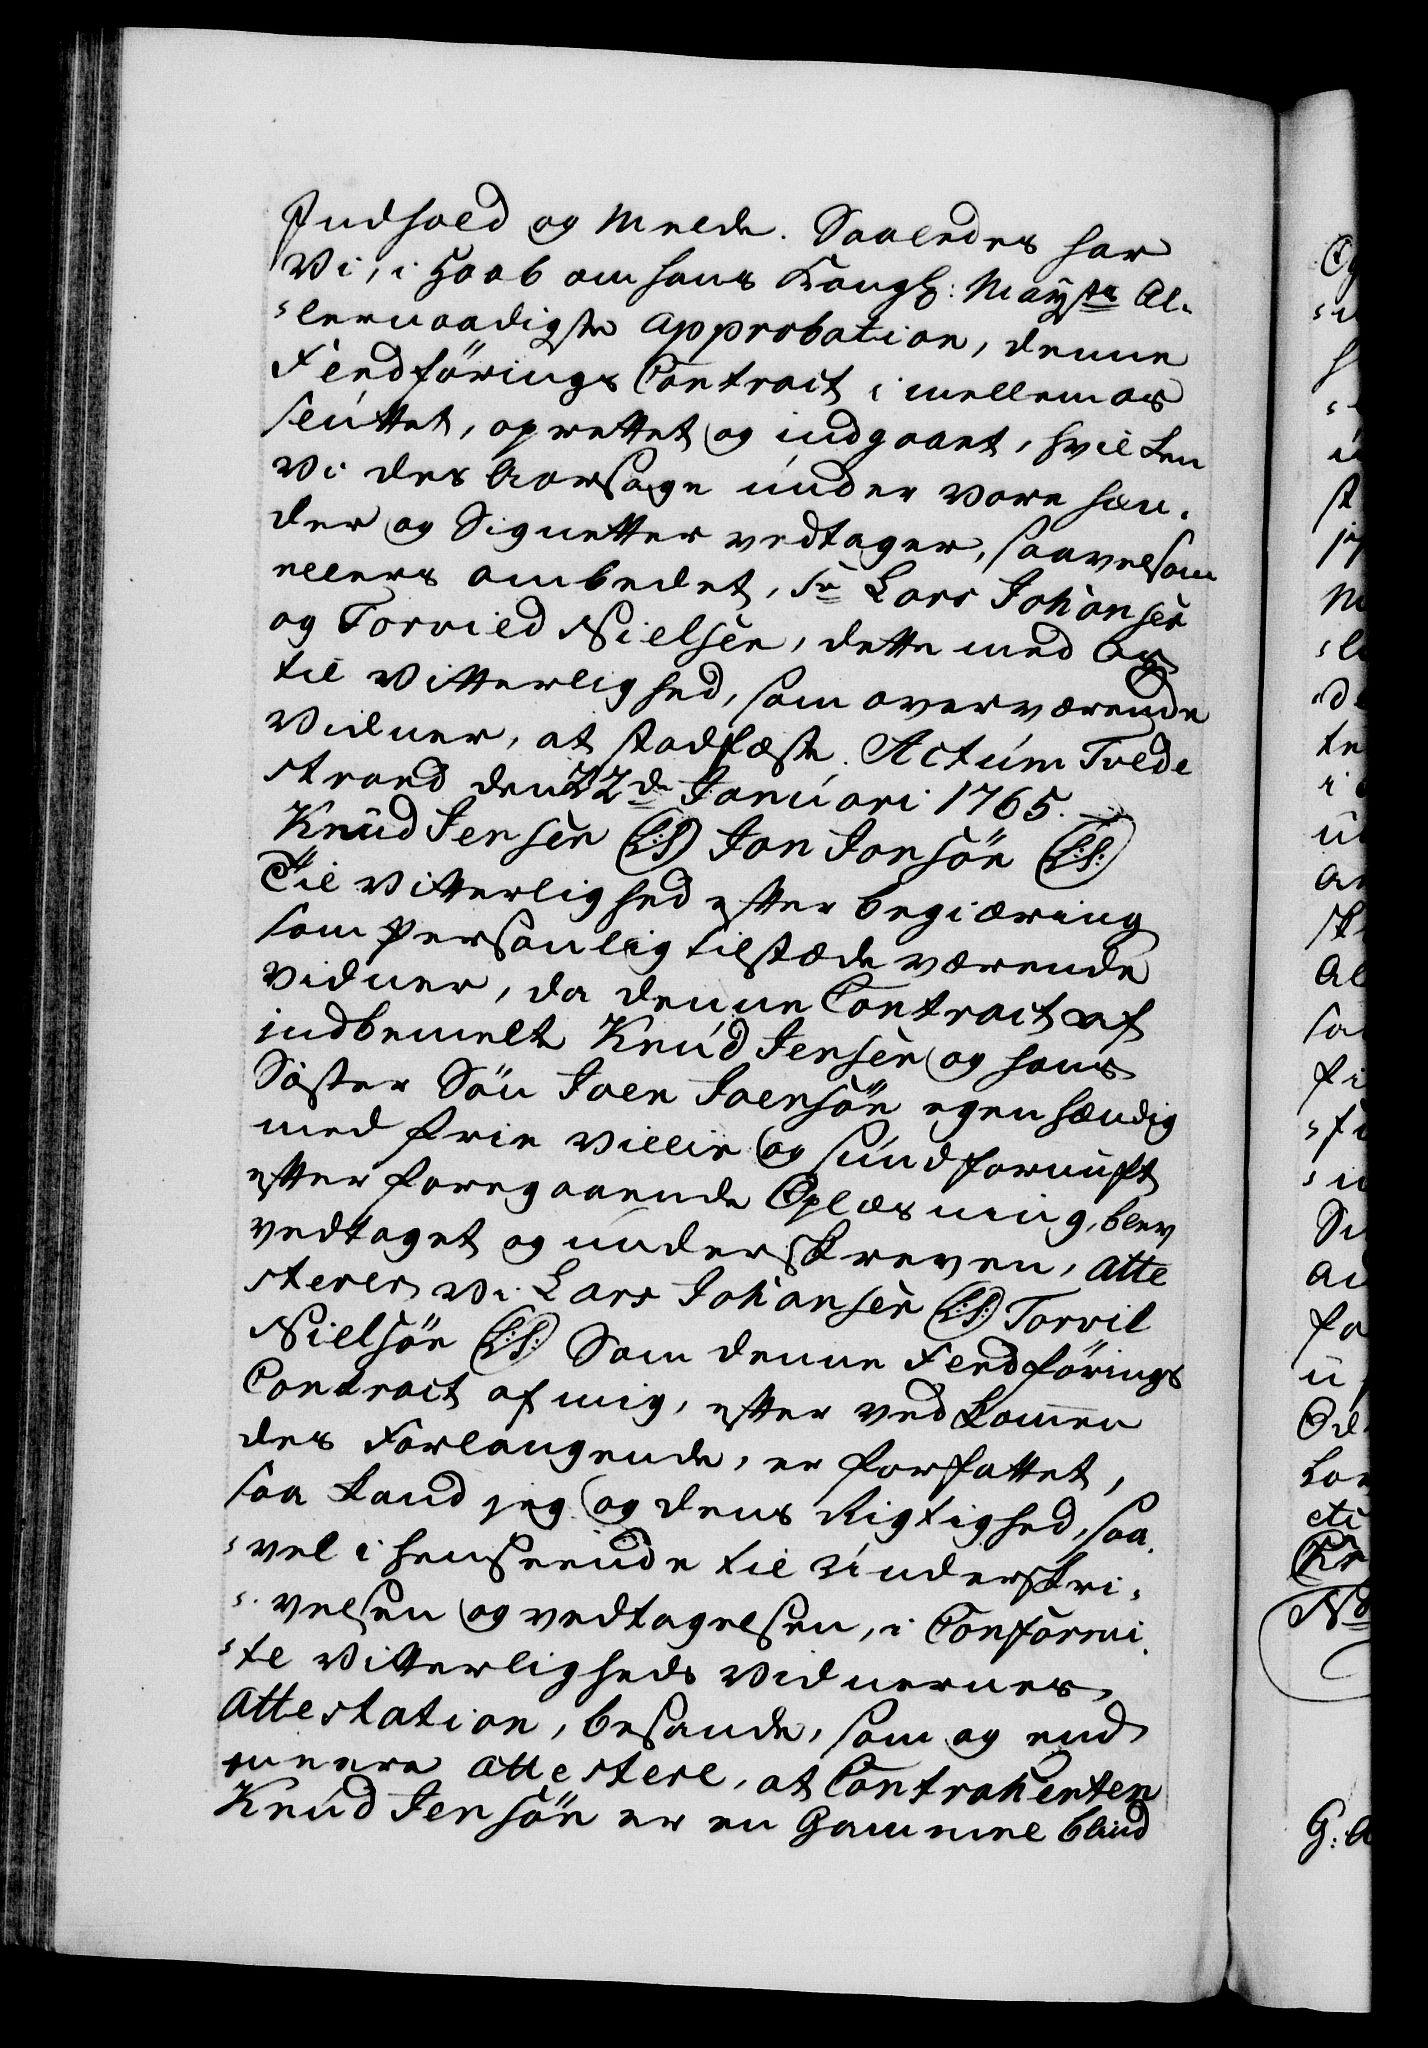 Indhold og Meede. Saaledes har
Vi, i Haab om hans Kongl: Mayts Al-
lernaadigste Approbation, denne
Fledførings Contract i mellem os
sluttet, oprettet og indgaaet, hvilken
Vi des Aarsage under Vore hæn-
der og Signetter vedtager, saavelsom
ellers ombedet, Sr Lars Johansen
og Torvild Nielsen, dette med Os
til Vitterlighed, som overværende
Vidner, at stadfæste. Actum Tvede
strand den 22de Januari 1765.
Knud Jensen (L:S) Jon Jonsön (L:S:)
Til Vitterlighed efter begiæring
som Personlig tilstædeværende
Vidner, da denne Contract af
indbemelte Knud Jensen og hans
Søster Søn Joen Joensön egenhændig
med frie Villie og sund fornuft
efter foregaaende Oplæsning, blev
vedtaget og underskreven, Atte
sterer Vi. Lars Johansen (L:S:) Torvil
Nielsön (L:S:) Som denne Fledførings
Contract af mig, efter vedkommen
des Forlangende, er forfattet,
saa kand jeg og dens Rigtighed, saa
vel i henseende til Underskri-
velsen og vedtagelsen, i Conformi-
te Vitterligheds Vidnernes
Attestation, besande, som og end
meere Attestere, at Contrahenten
Knud Jensön er en Gammel blind